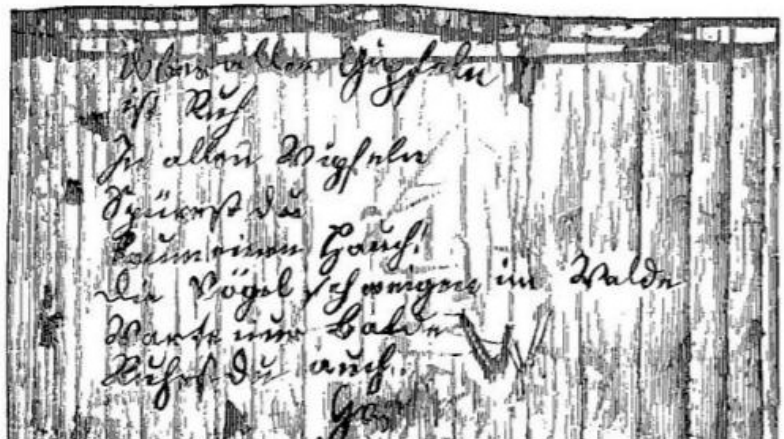 Über allen Gipfeln
ist Ruh
In allen Wipfeln
Spürest du
Kaum einen Hauch!
die Vögel schweigen im Walde
Warte nur balde
Ruhest du auch.